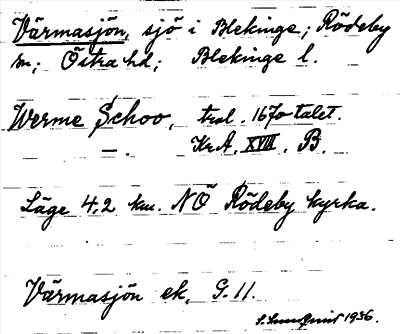 Värmasjön, sjö i Blekinge; Rödeby
sn; Östra hd; Blekinge l.
Werme Schoo, trol. 1670-talet.
— " — . Kr.A. XVIII. B.
Läge 4,2 km. NÖ Rödeby kyrka.
Värmasjön ek, G.11.
S. Sundquist 1936.